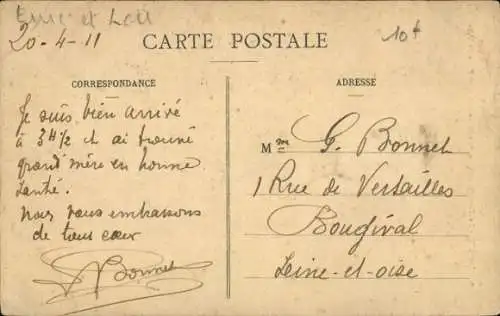 Eure et Loir
20-4-11
10f
CARTE POSTALE
CORRESPONDANCE
Je suis bien arrivé
à 3H½ et ai trouvé
grand'mère en bonne
santé.
Nous vous embrassons
de tout cœur
Bonnet
ADRESSE
Mme G. Bonnet
1 Rue de Versailles
Bougival
Seine-et-oise